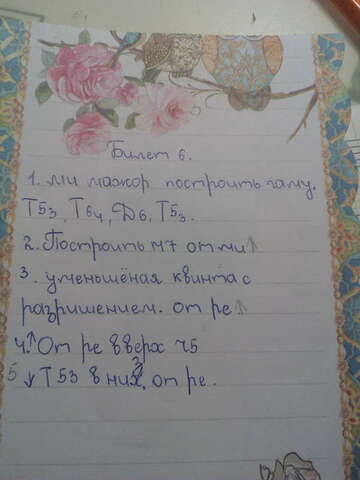 Билет 6.
1. ми мажор построить гаму.
Т53, Т64, Д6, Т53.
2. Построить м7 от ми↑
3. уменьшёная квинта с
разришением. от ре↑
4.↑ От ре вверх ч5
5 ↓ Т53 в низ, от ре.